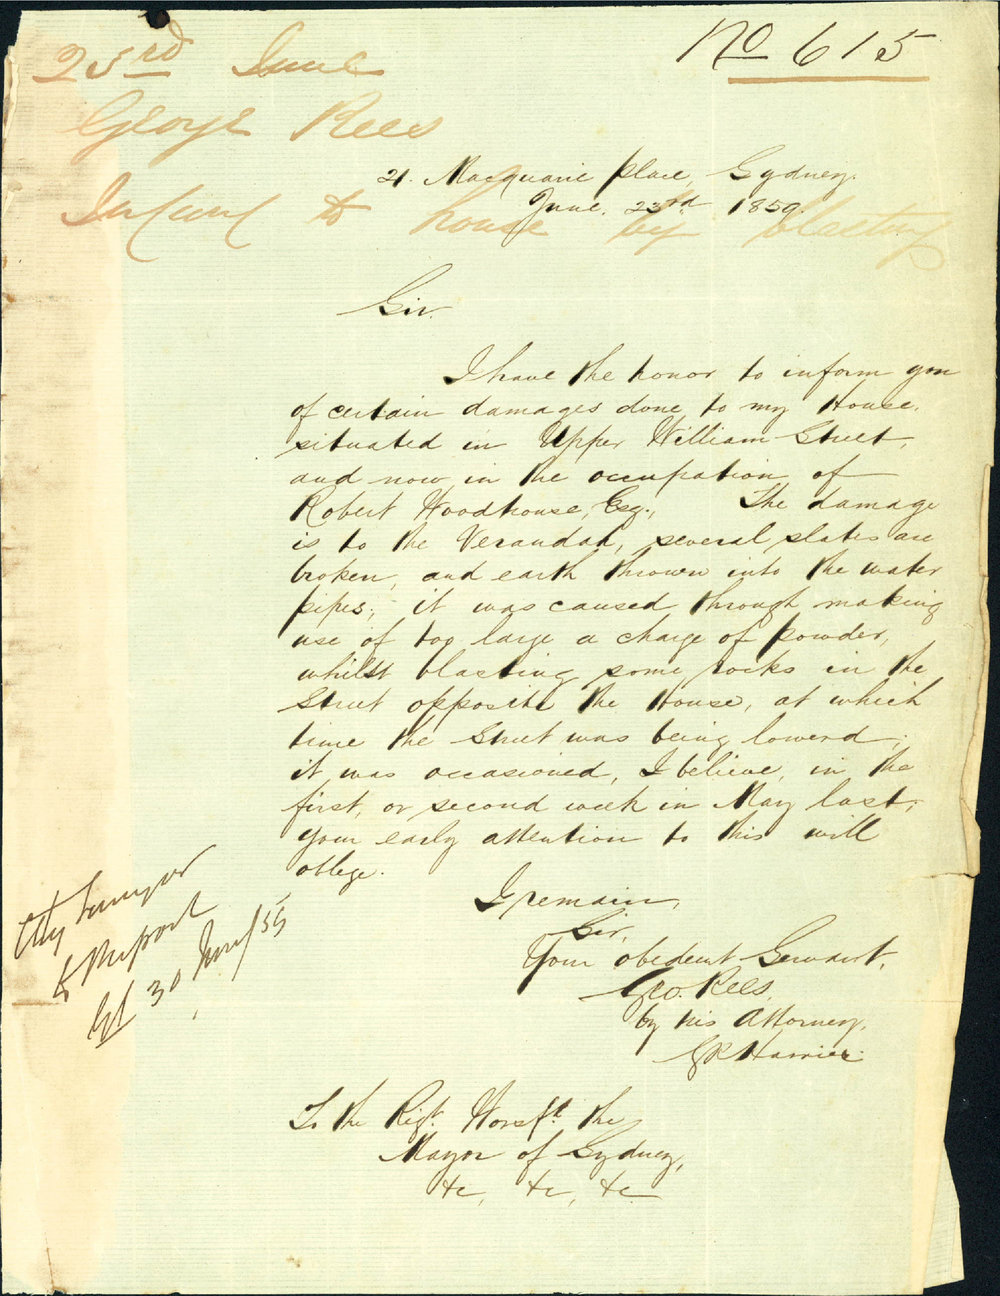 No 615
23rd June
George Rees
Injury to house by blasting
21. Macquarie place, Sydney.
June. 23rd. 1859.
Sir.
I have the honor to inform you
of certain damages done, to my House,
situated in Upper William Street,
and now, in the occupation of
Robert Woodhouse, Esq., The damage
is to the Verandah, several slates are
broken, and earth thrown into the water
pipes; it was caused through making
use of too large a charge of powder,
whilst blasting some rocks in the
Street opposite the House, at which
time the Street was being lowerd;
it was occasioned, I believe, in the
first, or second week in May last,
your early attention to this will
oblege.
I remain,
Sir,
Your obedient Servant,
Geo. Rees.
by his Attorney,
City Surveyor
to Report
30 June/59
To the Rigt. Worsfl. the
Mayor of Sydney,
&c, &c, &c